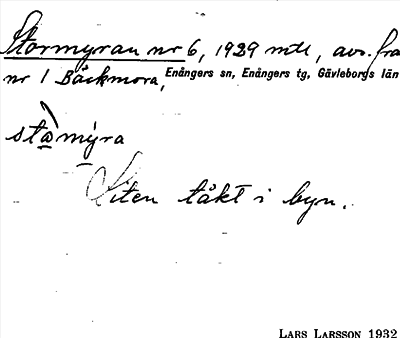 Stormyran nr 6, 1929 mtl, avs. fra
nr 1 Bäckmora, Enångers sn, Enångers tg, Gävleborgs län
stamýra
Liten täkt i byn.
LARS LARSSON 1932